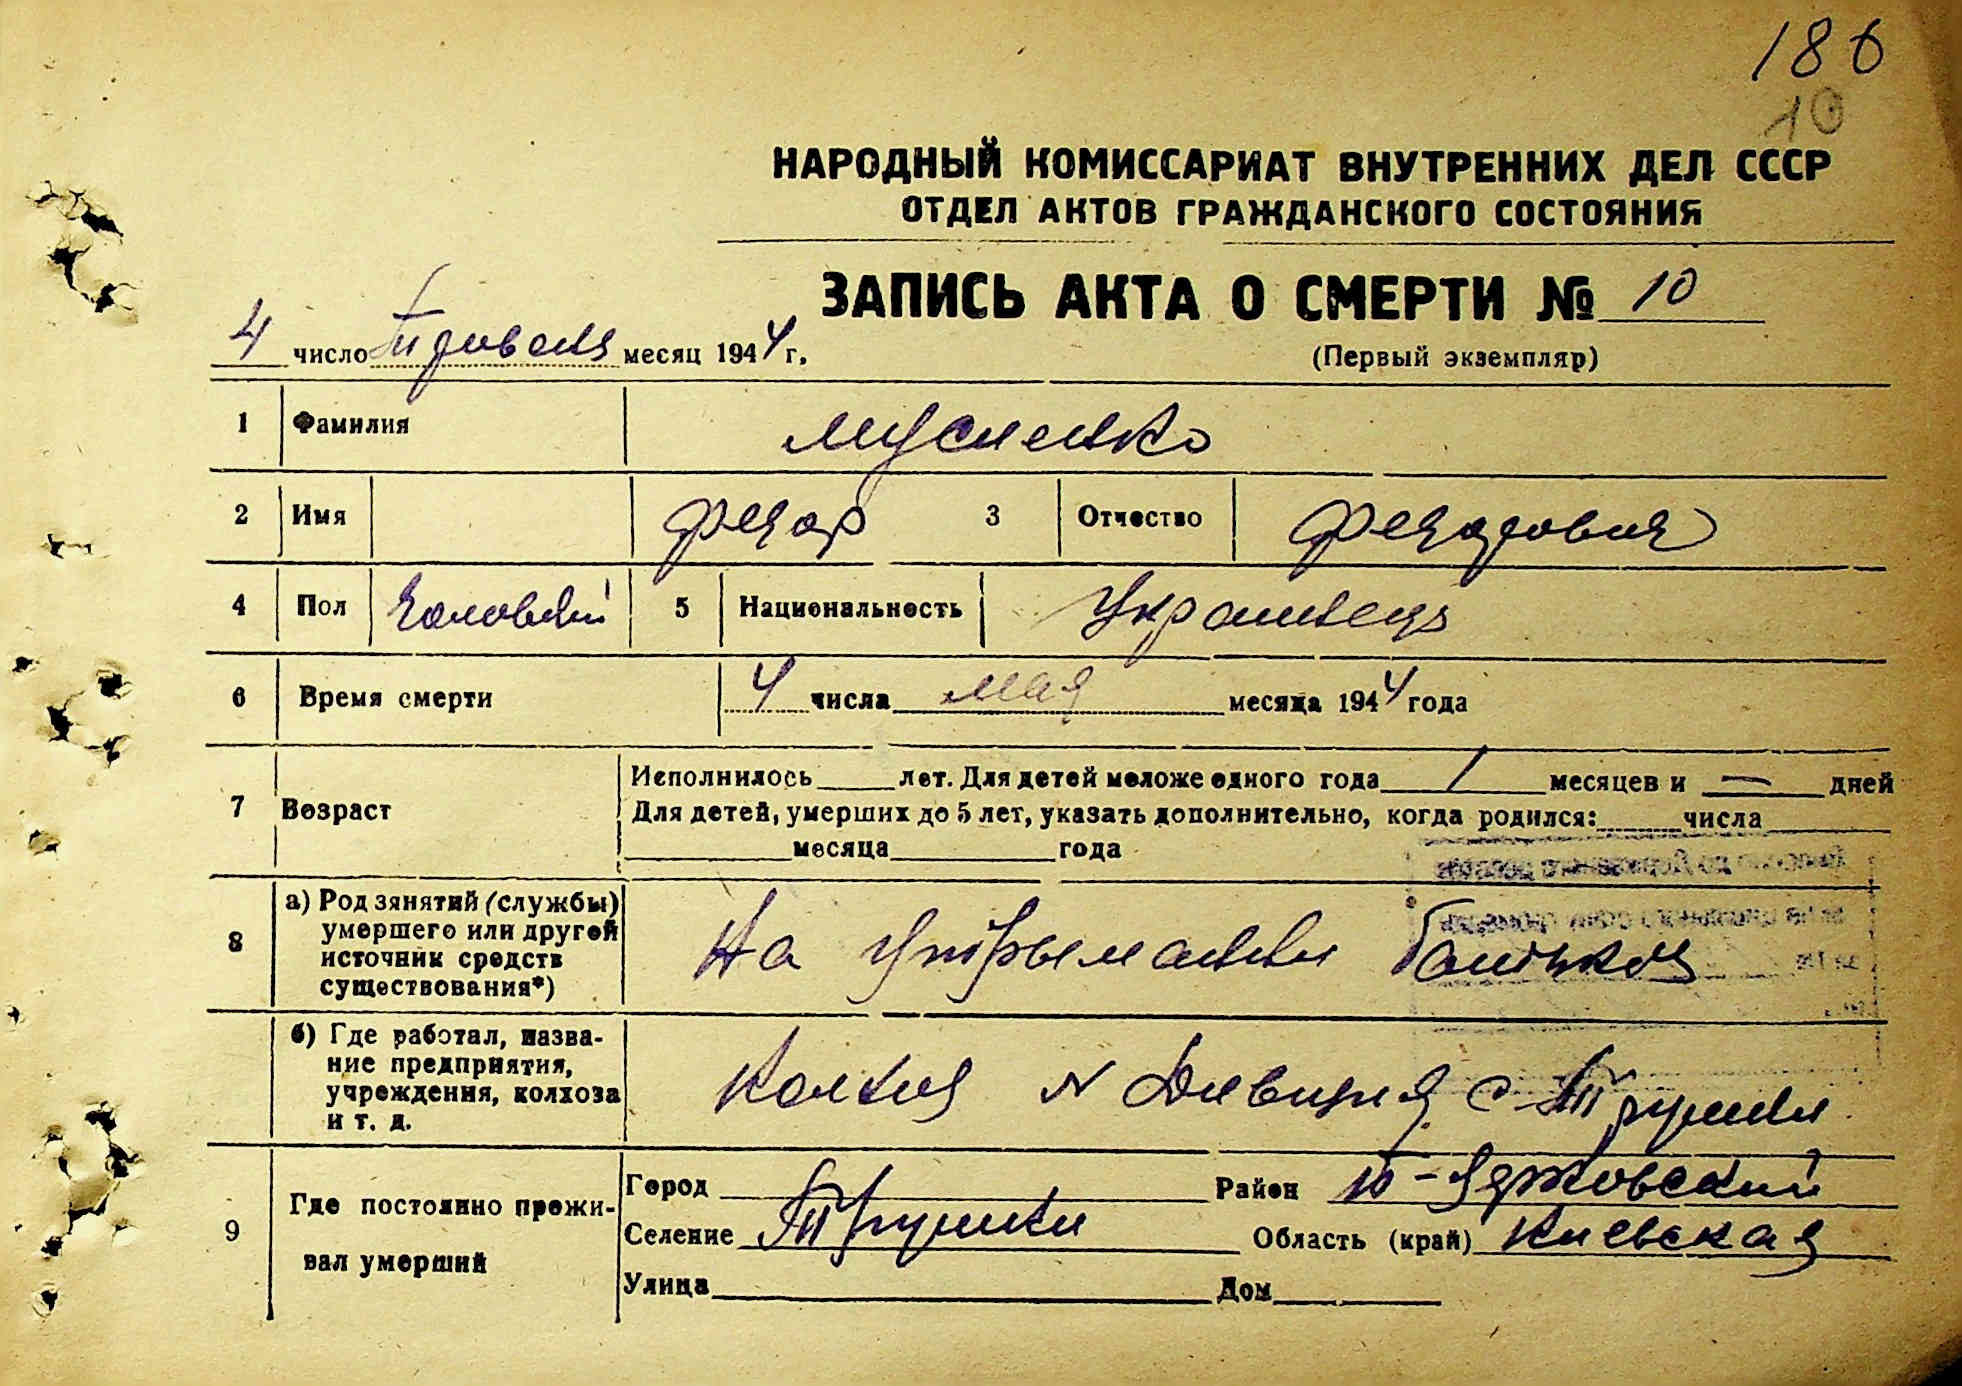 186
10
НАРОДНЫЙ КОМИССАРИАТ ВНУТРЕННИХ ДЕЛ СССР
ОТДЕЛ АКТОВ ГРАЖДАНСКОГО СОСТОЯНИЯ
ЗАПИСЬ АКТА О СМЕРТИ № 10
4 число Травеня месяц 1944 г.
(Первый экземпляр)
1 Фамилия Мусиенко
2 Имя Федор 3 Отчество Федорович
4 Пол Чоловічий 5 Национальность Украинец
6 Время смерти 4 числа мая месяца 1944 года
7 Возраст
Исполнилось лет. Для детей моложе одного года 1 месяцев и — дней
Для детей, умерших до 5 лет, указать дополнительно, когда родился: числа
месяца года
8 а) Род занятий (службы) умершего или другой источник средств существования*)
На утрыманни батькив
б) Где работал, название предприятия, учреждения, колхоза и т. д.
с Трушки
9 Где постоянно проживал умерший
Город Район
Селение Трушки Область (край) Киевская
Улица Дом